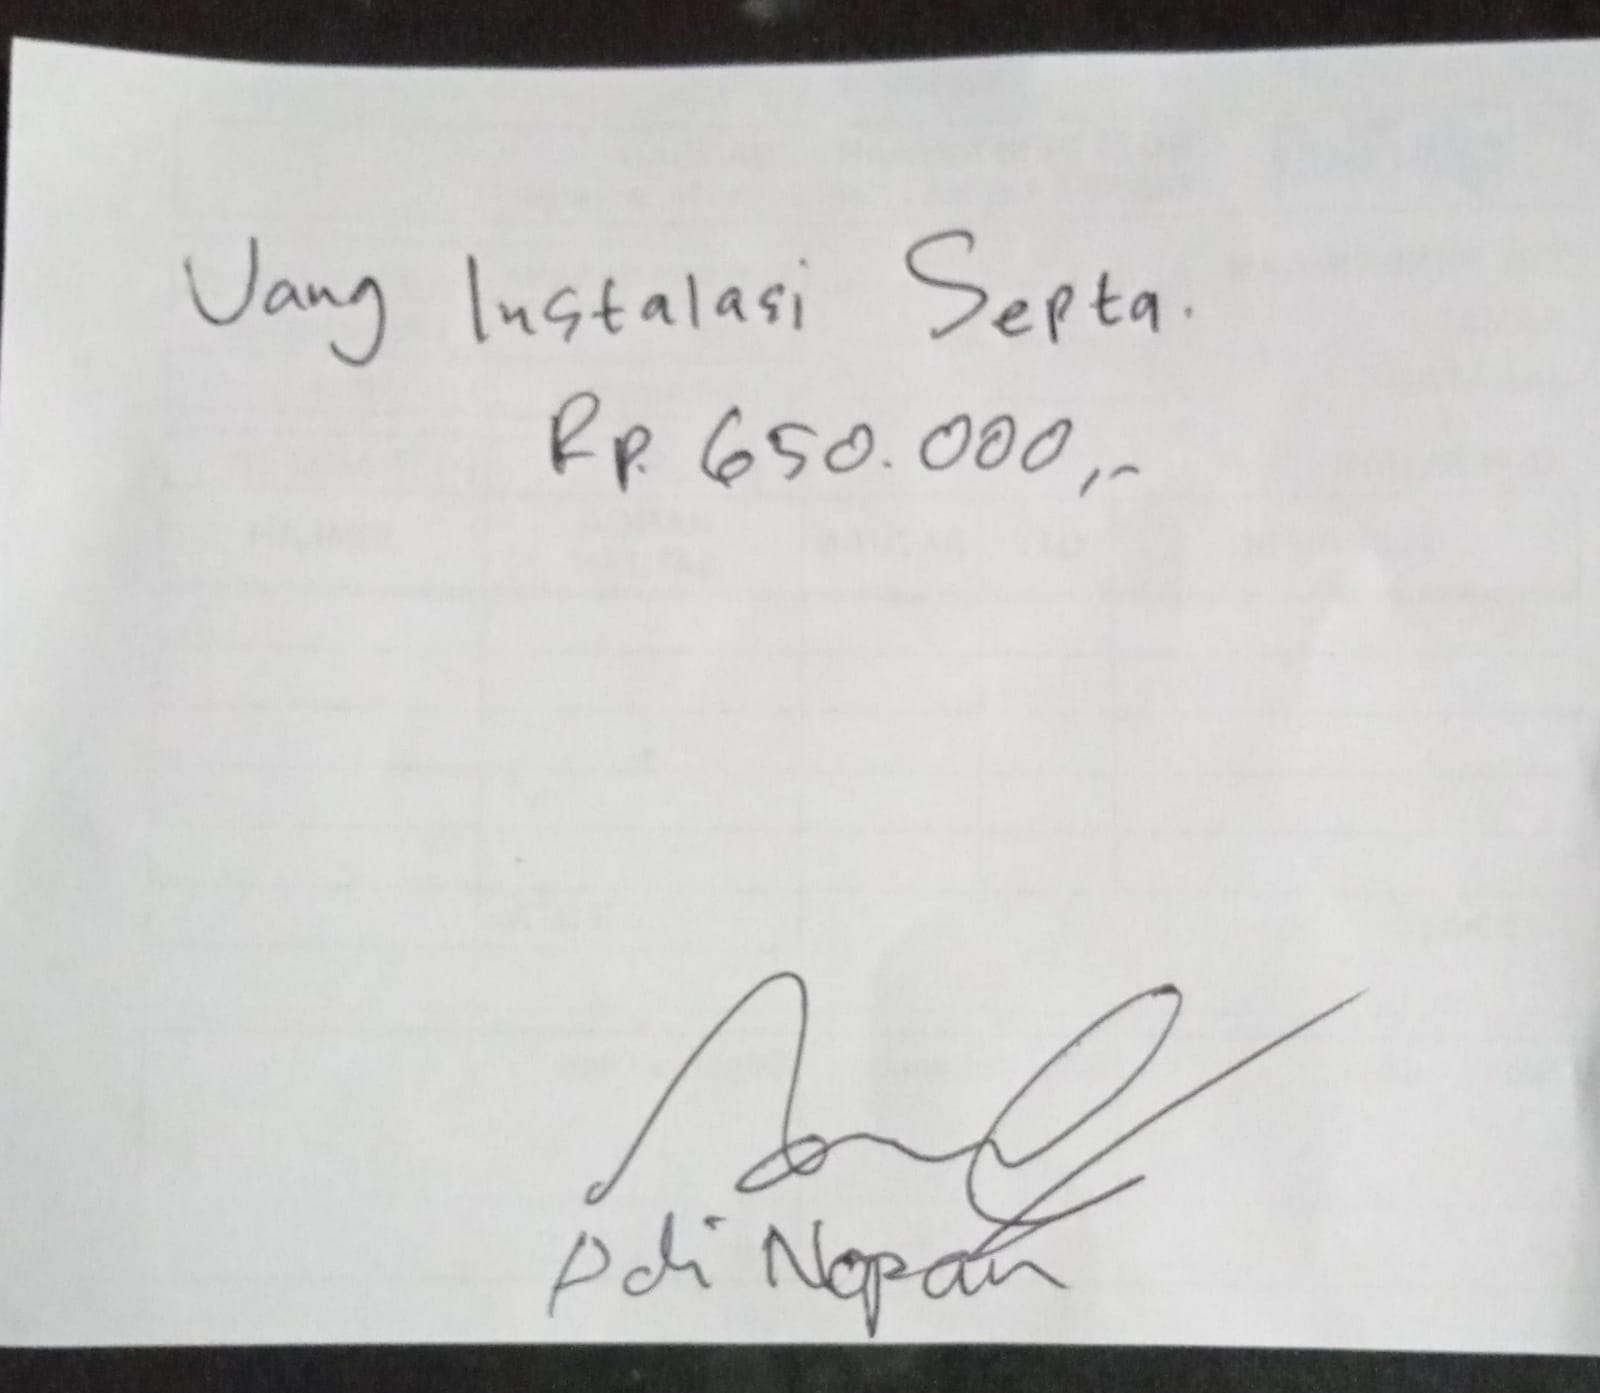 Uang Instalasi Septa.
Rp. 650.000,-
Adi Nopan